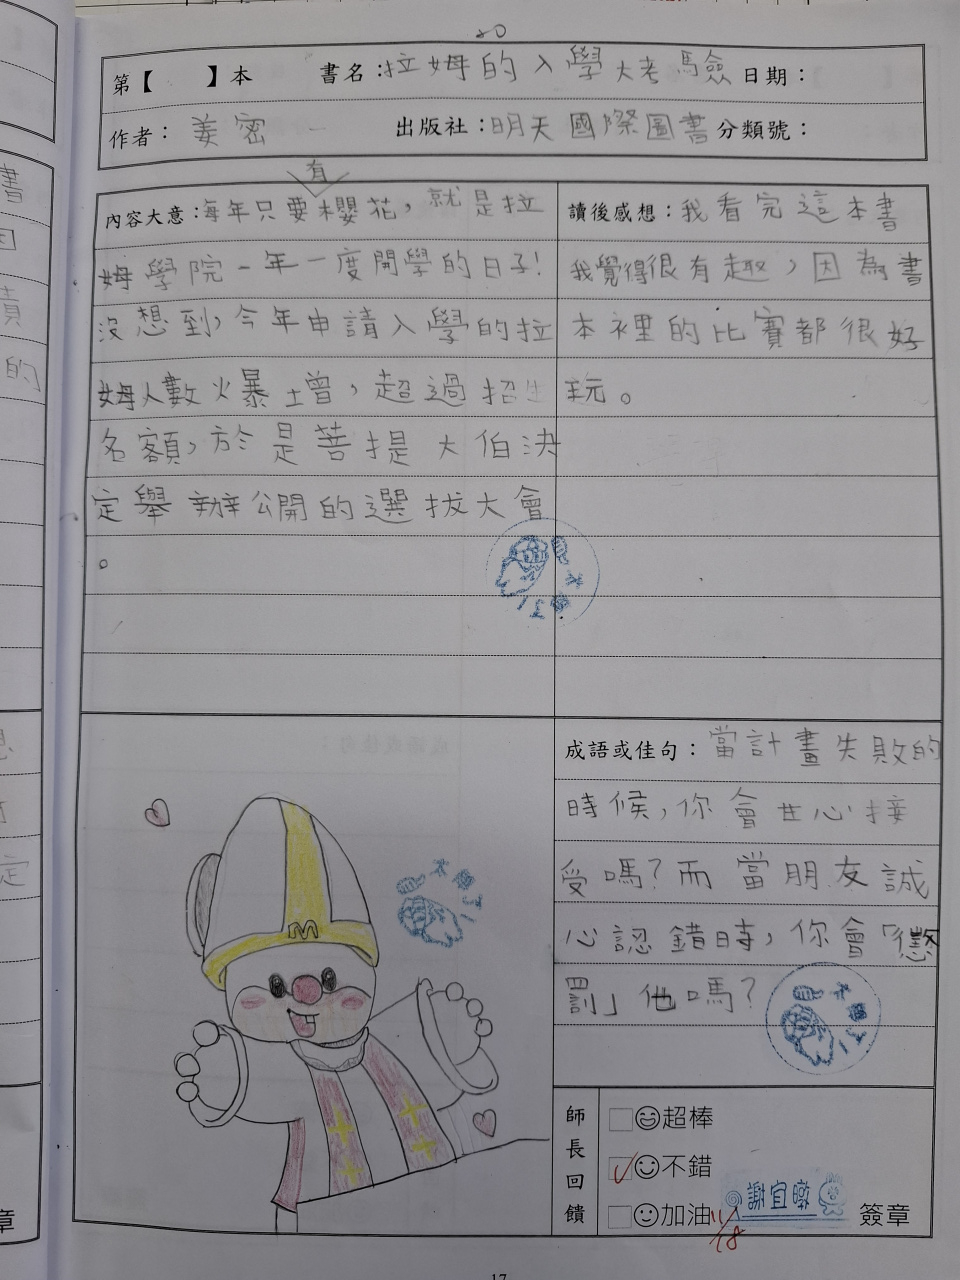 20
第【 】本 書名：拉姆的入學大考驗 日期：
作者：姜密 出版社：明天國際圖書 分類號：
有
內容大意：每年只要櫻花，就是拉
姆學院一年一度開學的日子！
沒想到，今年申請入學的拉
姆人數火暴增，超過招生
名額，於是菩提大伯決
定舉辦公開的選拔大會
。
讀後感想：我看完這本書
我覺得很有趣，因為書
本裡的比賽都很好
玩。
成語或佳句：當計畫失敗的
時候，你會甘心接
受嗎？而當朋友誠
心認錯時，你會「懲
罰」他嗎？
M
師長回饋
超棒
不錯
加油 簽章
11/18
17